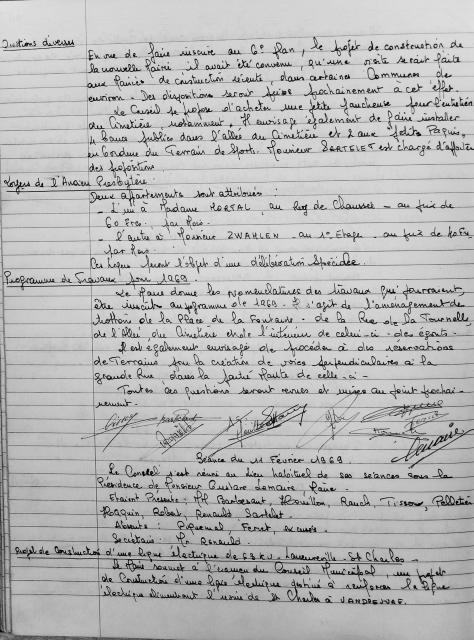 Questions diverses
En vue de faire inscrire au 6e plan, le projet de construction de
la nouvelle Mairie il avait été convenu, qu'une visite serait faite
aux Mairies de construction récente dans certaines Communes des
environs. Des dispositions seront prises prochainement à cet effet.
Le Conseil se propose d'acheter une petite faucheuse pour l'entretien
du Cimetière notamment. Il envisage également de faire installer
4 bancs publics dans l'allée du Cimetière et 2 aux Petits Paquis,
en bordure du Terrain de Sports. Monsieur SARTELET est chargé d'effectuer
des propositions
Loyers de l'Ancien Presbytère.
Deux appartements sont attribués :
- L'un à Madame MORTAL, au Rez de Chaussée - au prix de
60 Frs. par Mois.
- l'autre à Monsieur ZWAHLEN - au 1er Etage - au prix de
par Mois.
Ces loyers feront l'objet d'une délibération spéciale.
Programme de Travaux pour 1969
Le Maire donne les nomenclatures des travaux qui pourraient
être inscrits au programme de 1969. Il s'agit de l'aménagement de
trottoirs de la Place de la Fontaine - de la Rue de la Tournelle
de l'Allée du Cimetière et de l'intérieur de celui-ci - des égouts.
Il est également envisagé de procéder à des réservations
de Terrains pour la création de voies perpendiculaires à la
grande Rue, dans la partie Haute de celle-ci -
Toutes ces questions seront revues et mises au point prochai-
nement.
Lemaire
Séance du 11 Février 1969.
Le Conseil s'est réuni au lieu habituel de ses séances sous la
Présidence de Monsieur Gustave Lemaire, Maire.
Etaient Présents : MM Barbesant, Rauch, Tisson, Pelletier
Robert, Renauld, Sartelet.
Absents : Ferret, excusés.
Secrétaire : Mr Renauld.
Projet de Construction d'une ligne électrique de 63 KV - St Charles -
le Maire soumet à l'examen du Conseil Municipal, un projet
de Construction d'une ligne électrique destiné à renforcer la ligne
électrique alimentant l'usine de St Charles à VANDRESSE.